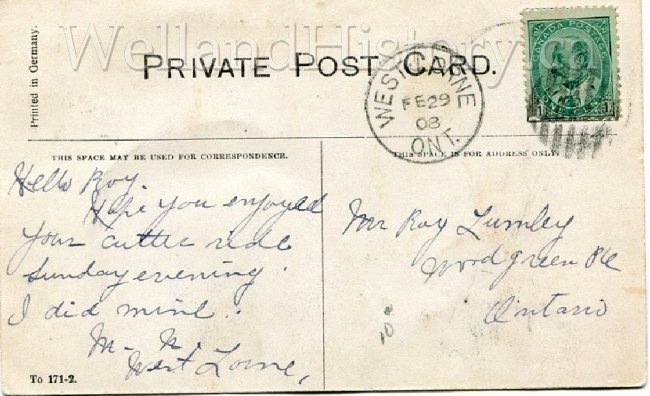 WellandHistory
Printed in Germany.
PRIVATE POST CARD.
WEST LORNE
FE 29
08
ONT.
CANADA POSTAGE
1 1
THIS SPACE MAY BE USED FOR CORRESPONDENCE.
THIS SPACE IS FOR ADDRESS ONLY.
Hello Roy.
Hope you enjoyed
your cutter ride
Sunday evening.
I did mine.
M. N.
West Lorne,
Mr Roy Lumley
Woodgreen PO
Ontario
10
To 171-2.